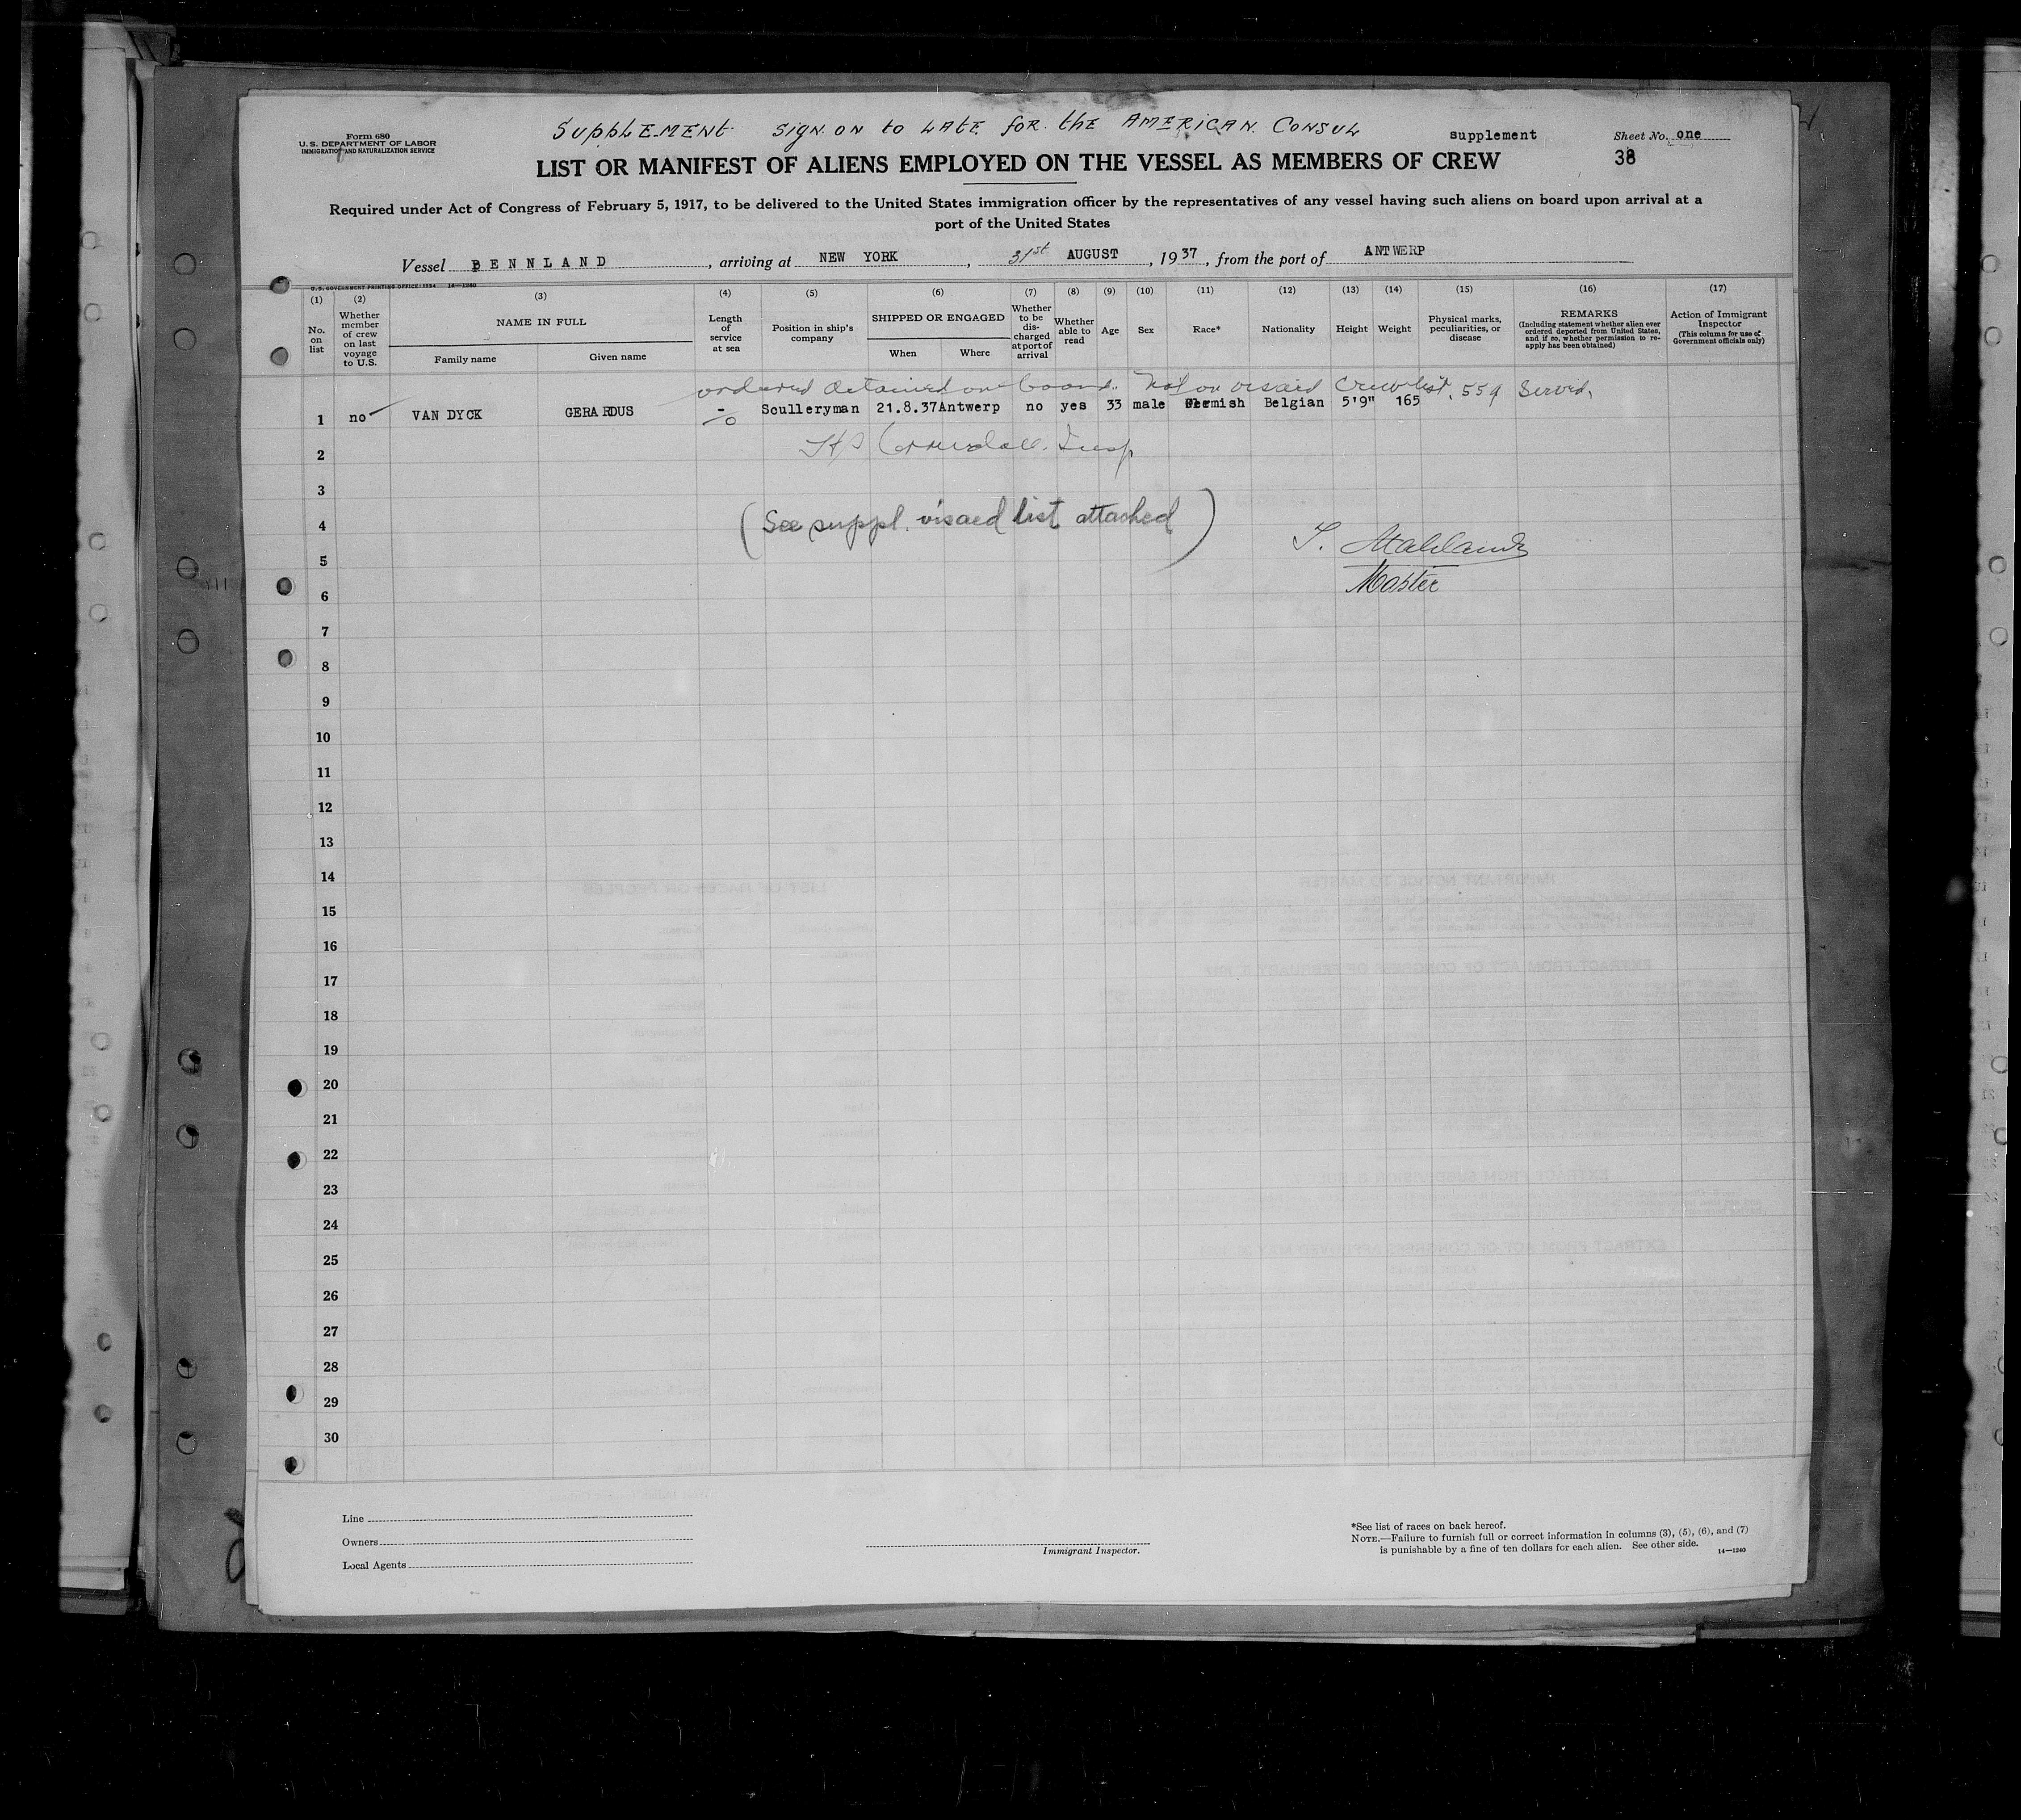 SUPPLEMENT SIGN ON TO LATE FOR THE AMERICAN CONSUL
Form 680
U. S. DEPARTMENT OF LABOR
IMMIGRATION AND NATURALIZATION SERVICE
supplement
Sheet No. one
38
LIST OR MANIFEST OF ALIENS EMPLOYED ON THE VESSEL AS MEMBERS OF CREW
Required under Act of Congress of February 5, 1917, to be delivered to the United States immigration officer by the representatives of any vessel having such aliens on board upon arrival at a
port of the United States
Vessel PENNLAND, arriving at NEW YORK, 31st AUGUST, 1937, from the port of ANTWERP
U. S. GOVERNMENT PRINTING OFFICE: 1934 14—1240
(1) (2) (3) (4) (5) (6) (7) (8) (9) (10) (11) (12) (13) (14) (15) (16) (17)
No. on list
Whether member of crew on last voyage to U.S.
NAME IN FULL
Family name
Given name
Length of service at sea
Position in ship's company
SHIPPED OR ENGAGED
When
Where
Whether to be discharged at port of arrival
Whether able to read
Age
Sex
Race*
Nationality
Height
Weight
Physical marks, peculiarities, or disease
REMARKS
(Including statement whether alien ever ordered deported from United States, and if so, whether permission to reapply has been obtained)
Action of Immigrant Inspector
(This column for use of Government officials only)
ordered detained on board. Not on visaed Crew list. 559 Served.
1 no VAN DYCK GERARDUS - Sculleryman 21.8.37 Antwerp no yes 33 male Flemish Belgian 5'9" 165
2
Insp
3
4
(See suppl. visaed list attached)
5
Master
6
7
8
9
10
11
12
13
14
15
16
17
18
19
20
21
22
23
24
25
26
27
28
29
30
Line
Owners
Local Agents
Immigrant Inspector.
*See list of races on back hereof.
NOTE.—Failure to furnish full or correct information in columns (3), (5), (6), and (7)
is punishable by a fine of ten dollars for each alien. See other side.
14—1240